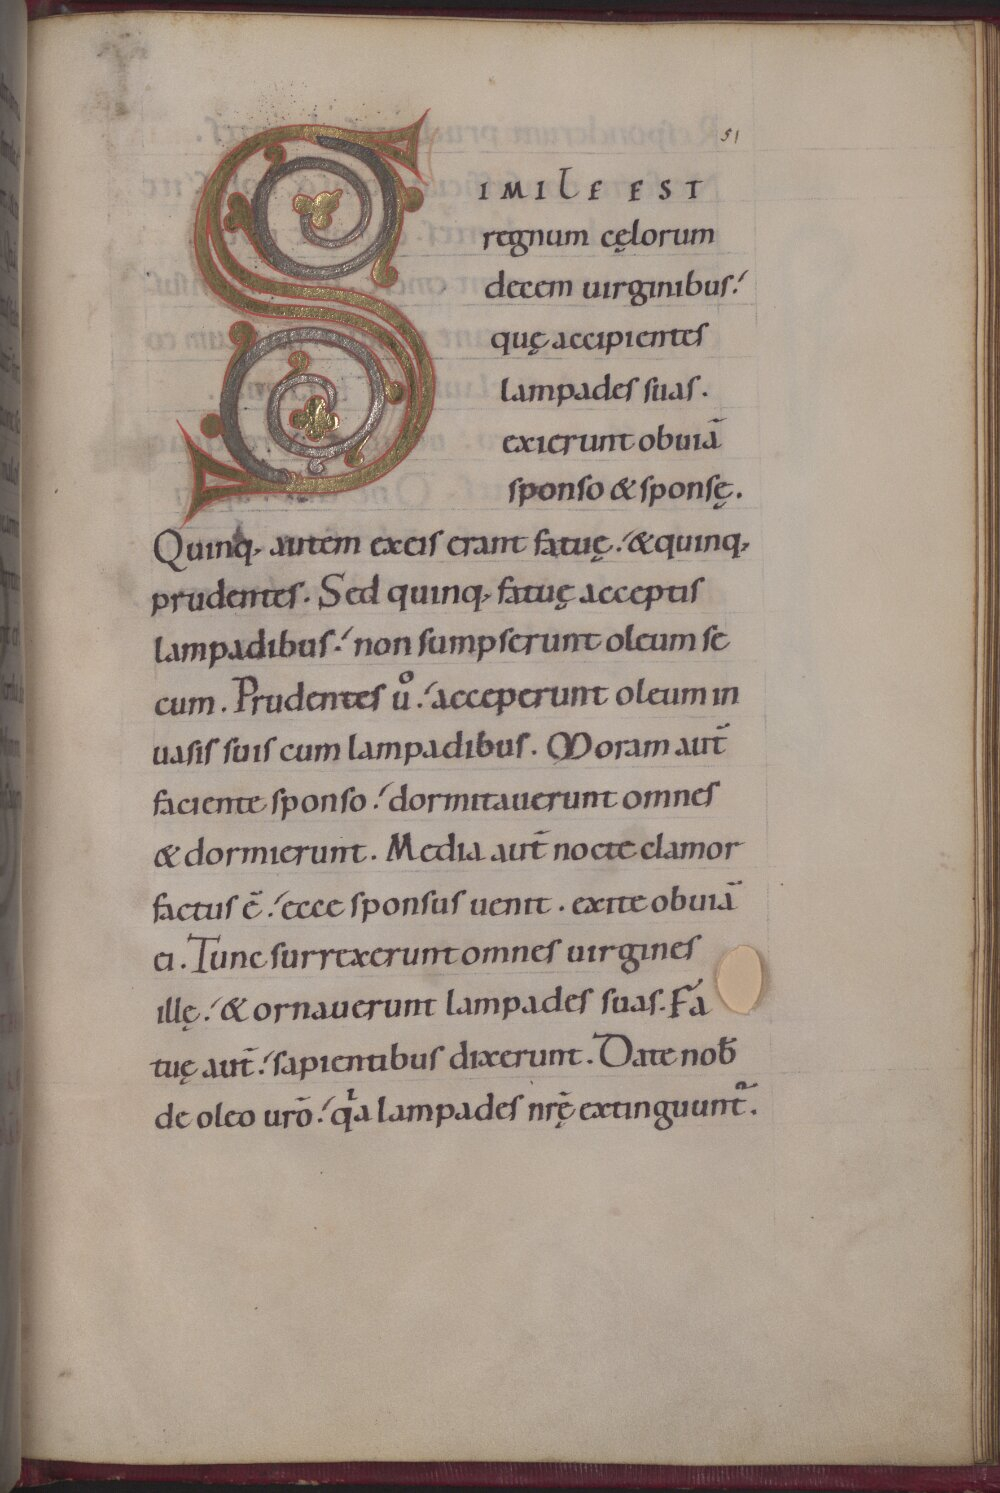 51
SIMILE EST
regnum cęlorum
decem uirginibus.
quę accipientes
lampades suas.
exierunt obuiā
sponso & sponsę.
Quinq, autem exeis erant fatuę. & quinq,
prudentes. Sed quinq, fatuę acceptis
lampadibus. non sumpserunt oleum se
cum. Prudentes uͦ. acceperunt oleum in
uasis suis cum lampadibus. Moram aut̄
faciente sponso. dormitauerunt omnes
& dormierunt. Media aut̄ nocte clamor
factus ē. ecce sponsus uenit. exite obuiā
ei. Tunc surrexerunt omnes uirgines
illę. & ornauerunt lampades suas. Fa
tuę aut̄. sapientibus dixerunt. Date nob̄
de oleo urō. qͥa lampades nrę̄ extinguunt᷑.